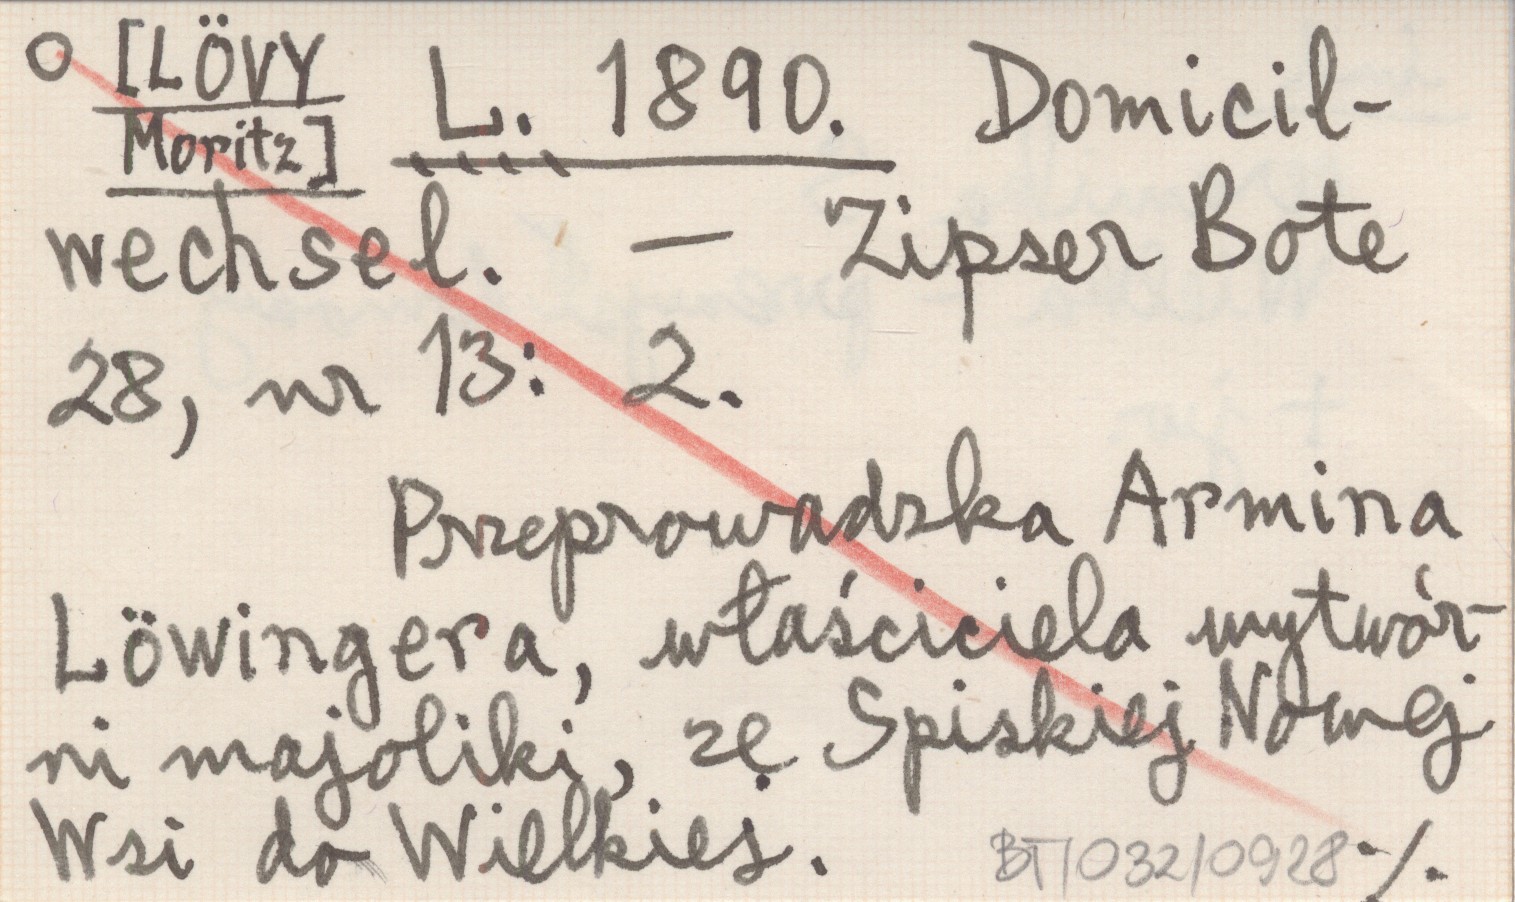 o [LÖVY Moritz] L. 1890. Domicil-
wechsel. — Zipser Bote
28, nr 13: 2.
Przeprowadzka Armina
Löwingera, właściciela wytwór-
ni majoliki, ze Spiskiej Nowej
Wsi do Wielkiej.
BT/032/0928 ·/.